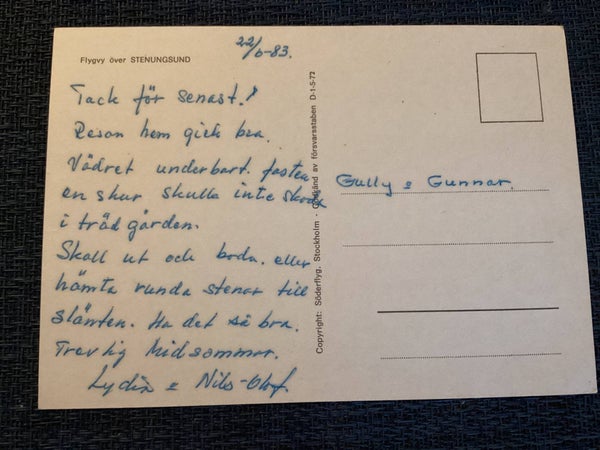 Flygvy över STENUNGSUND
22/6-83.
Tack för senast!
Resan hem gick bra.
Vädret underbart. fasten
en skur skulle inte skada
i trädgården.
Skall ut och bada. eller
hämta runda stenar till
slänten. Ha det så bra.
Trevlig Midsommar.
Lydia o Nils-Olof.
Copyright: Söderflyg, Stockholm - Godkänd av försvarsstaben D-1-5-72
Gully o Gunnar.